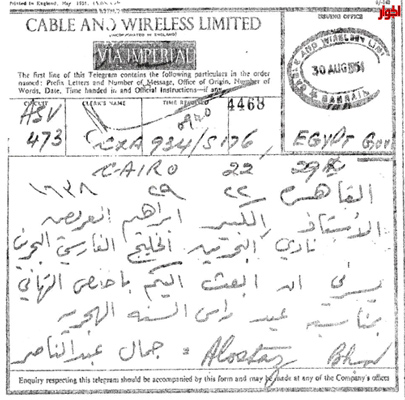 الجوار
Printed in England. May 1951.
RECEIVING OFFICE
CABLE AND WIRELESS LIMITED
(INCORPORATED IN ENGLAND)
VIA IMPERIAL
The first line of this Telegram contains the following particulars in the order
named: Prefix Letters and Number of Message, Office of Origin, Number of
Words, Date, Time handed in and Official Instructions—if any.
CABLE AND WIRELESS LTD.
30 AUG 51
BAHRAIN
CIRCUIT CLERK'S NAME TIME RECEIVED 4468
ASV 0940
473 CXA934/S176 EGYPT GOVT
CAIRO 22 29
القاهرة ٢٢ ٢٩ ١٦٣٨
الأستاذ الكبير ابراهيم العريض
نادي البحرين الخليج الفارسي البحرين
يسرني ان ابعث اليكم باخلص التهاني
بمناسبة عيد راس السنه الهجريه
جمال عبدالناصر
Enquiry respecting this telegram should be accompanied by this form and may be made at any of the Company's offices